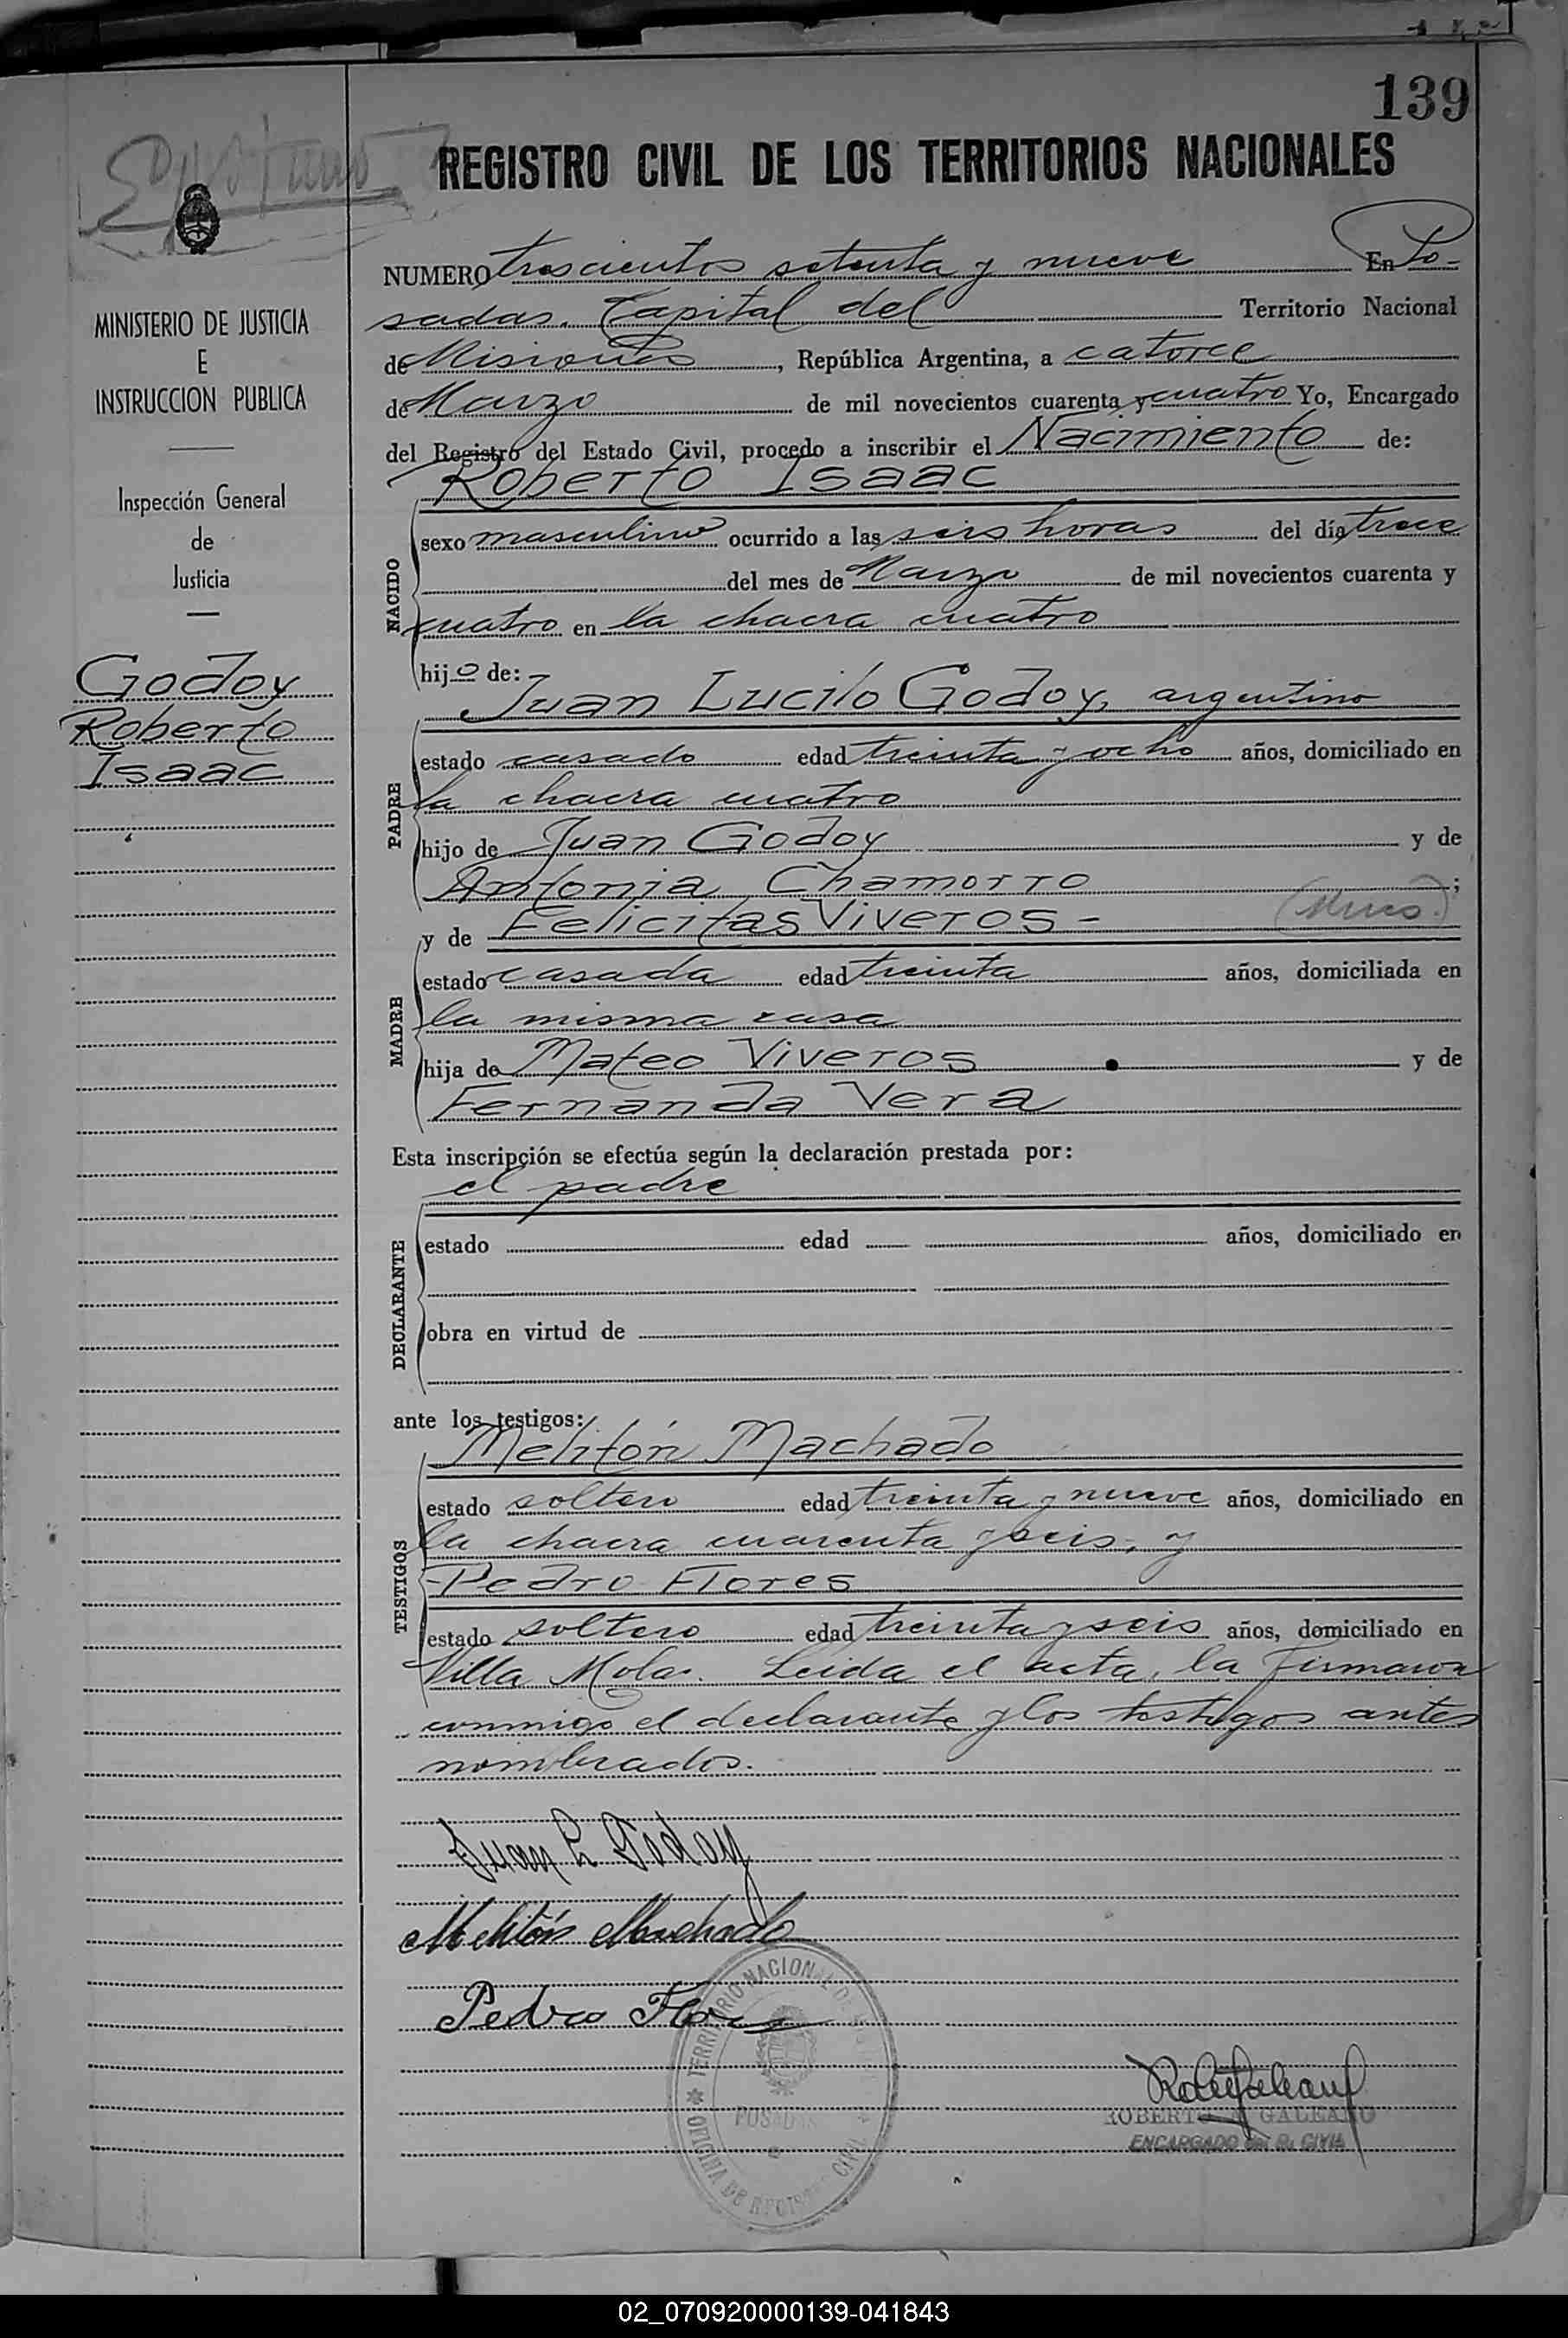 139
REGISTRO CIVIL DE LOS TERRITORIOS NACIONALES
MINISTERIO DE JUSTICIA
E
INSTRUCCION PUBLICA
Inspección General
de
Justicia
Godoy
Roberto
Isaac
NUMERO trescientos setenta y nueve En Po-
sadas. Capital del Territorio Nacional
de Misiones, República Argentina, a catorce
de Marzo de mil novecientos cuarenta y cuatro Yo, Encargado
del Registro del Estado Civil, procedo a inscribir el Nacimiento de:
Roberto Isaac
NACIDO
sexo masculino ocurrido a las seis horas del día trece
del mes de Marzo de mil novecientos cuarenta y
cuatro en la chacra cuatro
hijo de:
Juan Lucilo Godoy, argentino
PADRE
estado casado edad treinta y ocho años, domiciliado en
la chacra cuatro
hijo de Juan Godoy y de
Antonia Chamorro ;
y de Felicitas Viveros -
MADRE
estado casada edad treinta años, domiciliada en
la misma casa
hija de Mateo Viveros y de
Fernanda Vera
Esta inscripción se efectúa según la declaración prestada por:
el padre
DECLARANTE
estado edad años, domiciliado en
obra en virtud de
ante los testigos:
Melitón Machado
TESTIGOS
estado soltero edad treinta y nueve años, domiciliado en
la chacra cuarenta y seis, y
Pedro Flores
estado soltero edad treinta y seis años, domiciliado en
Villa Mola. Leida el acta, la firmaron
conmigo el declarante y los testigos antes
nombrados.
Juan L Godoy
Melitón Machado
Pedro Flores
TERRITORIO NACIONAL DE
POSADAS
OFICINA DE REGISTRO CIVIL
ROBERTO GALEANO
ENCARGADO del R. CIVIL
02_070920000139-041843